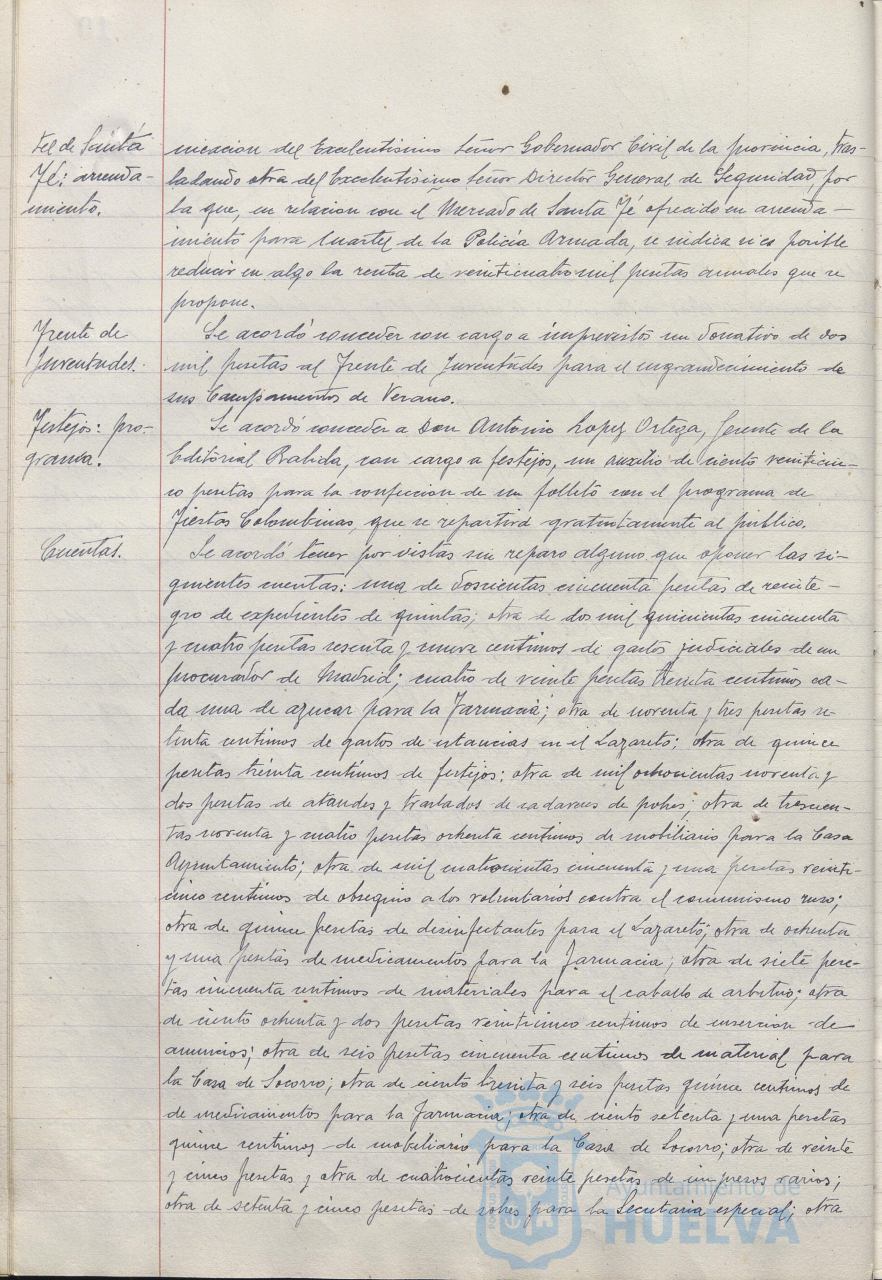 tel de Santa
Fé: arrenda-
miento.
nicacion del Excelentisimo Señor Gobernador Civil de la provincia, tras-
ladando otra del Excelentisimo Señor Director General de Seguridad, por
la que, en relacion con el Mercado de Santa Fé ofrecido en arrenda-
miento para Cuartel de la Policia Armada, se indica si es posible
reducir en algo la renta de veinticuatro mil pesetas anuales que se
propone.
Frente de
Juventudes.
Se acordó conceder con cargo a imprevistos un donativo de dos
mil pesetas al Frente de Juventudes para el engrandecimiento de
sus Campamentos de Verano.
Festejos: pro-
grama.
Se acordó conceder a Don Antonio Lopez Ortega, Gerente de la
Editorial Rabida, con cargo a festejos, un auxilio de ciento veinticin-
co pesetas para la confeccion de un folleto con el programa de
Fiestas Colombinas, que se repartirá gratuitamente al publico.
Cuentas.
Se acordó tener por vistas sin reparo alguno que oponer las si-
guientes cuentas: una de doscientas cincuenta pesetas de reinte-
gro de expedientes de quintas; otra de dos mil quinientas cincuenta
y cuatro pesetas sesenta y nueve centimos de gastos judiciales de un
procurador de Madrid; cuatro de veinte pesetas treinta centimos ca-
da una de azucar para la Farmacia; otra de noventa y tres pesetas se-
tenta centimos de gastos de estancias en el Lazareto; otra de quince
pesetas treinta centimos de festejos; otra de mil ochocientas noventa y
dos pesetas de ataudes y traslados de cadaveres de pobres; otra de trescien-
tas noventa y cuatro pesetas ochenta centimos de mobiliario para la Casa
Ayuntamiento; otra de mil cuatrocientas cincuenta y una pesetas veinti-
cinco centimos de obsequio a los voluntarios contra el comunismo ruso;
otra de quince pesetas de desinfectantes para el Lazareto; otra de ochenta
y una pesetas de medicamentos para la farmacia; otra de siete pese-
tas cincuenta centimos de materiales para el caballo de arbitrio; otra
de ciento ochenta y dos pesetas veinticinco centimos de insercion de
anuncios; otra de seis pesetas cincuenta centimos de material para
la Casa de Socorro; otra de ciento treinta y seis pesetas quince centimos de
de medicamentos para la farmacia; otra de ciento setenta y una pesetas
quince centimos de mobiliario para la Casa de Socorro; otra de veinte
y cinco pesetas y otra de cuatrocientas veinte pesetas de impresos varios;
otra de setenta y cinco pesetas de sobres para la Secretaria especial; otra
Ayuntamiento de
HUELVA